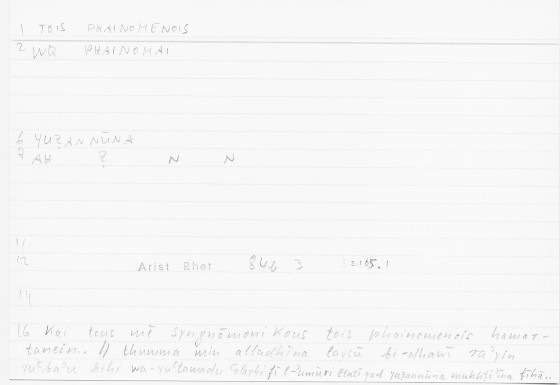 1 TOIS PHAINOMENOIS
2 WQ PHAINOMAI
6 YUẒANNŪNA
7 AH Ẓ N N
11
12 Arist Rhet 84b 3 : 2105.1
14
16 Kai tous mē syngnōmonikous tois phainomenois hamar-
tanein.. // thumma min alladhīna laysū bi-dhawī ra'yin
bihi wa-yu'tamadu fī l-umūri yuẓannūna fīhā..